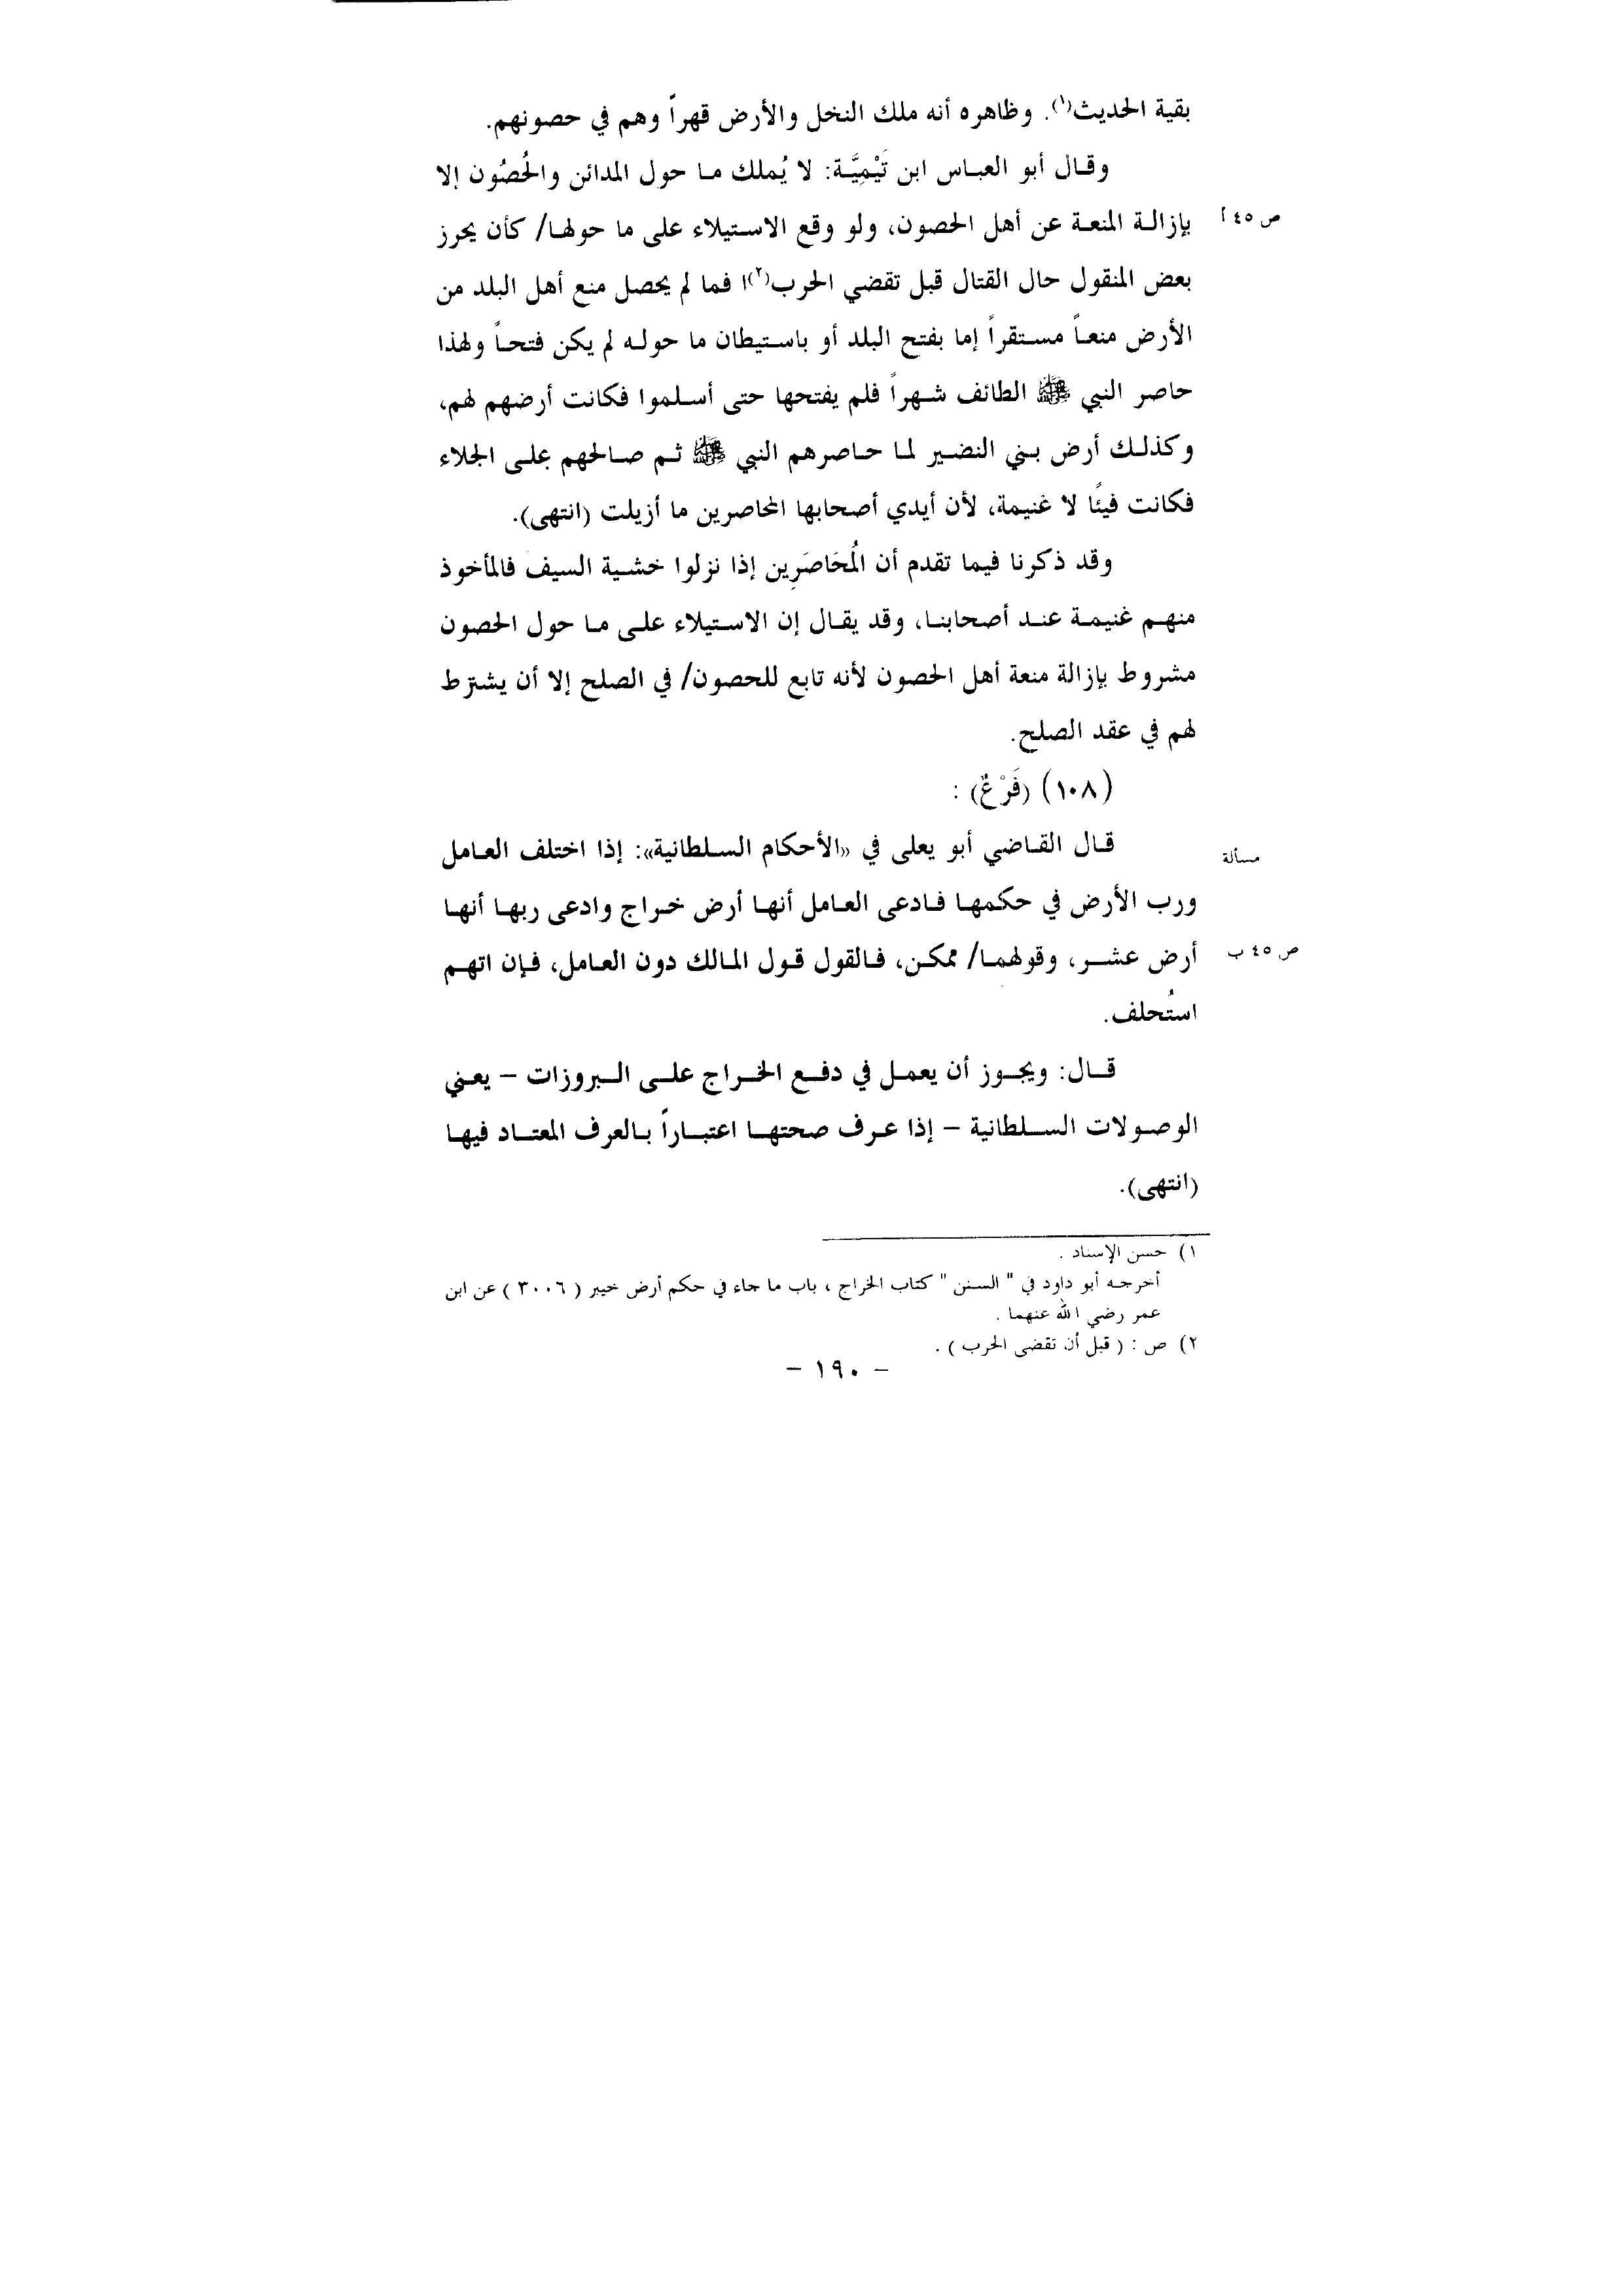 بقية الحديث(١). وظاهره أنه ملك النخل والأرض قهراً وهم في حصونهم.
وقال أبو العباس ابن تَيْمِيَّة: لا يُملك ما حول المدائن والحُصُون إلا
بإزالة المنعة عن أهل الحصون، ولو وقع الاستيلاء على ما حولها/ كأن يحرز
ص ٤٥ أ
بعض المنقول حال القتال قبل تقضي الحرب(٢)ا فما لم يحصل منع أهل البلد من
الأرض منعاً مستقراً إما بفتح البلد أو باستيطان ما حوله لم يكن فتحاً ولهذا
حاصر النبي ﷺ الطائف شهراً فلم يفتحها حتى أسلموا فكانت أرضهم لهم،
وكذلك أرض بني النضير لما حاصرهم النبي ﷺ ثم صالحهم على الجلاء
فكانت فيئًا لا غنيمة، لأن أيدي أصحابها المحاصرين ما أزيلت (انتهى).
وقد ذكرنا فيما تقدم أن المُحَاصَرِين إذا نزلوا خشية السيف فالمأخوذ
منهم غنيمة عند أصحابنا، وقد يقال إن الاستيلاء على ما حول الحصون
مشروط بإزالة منعة أهل الحصون لأنه تابع للحصون/ في الصلح إلا أن يشترط
لهم في عقد الصلح.
(١٠٨) (فَرْعٌ) :
قال القاضي أبو يعلى في «الأحكام السلطانية»: إذا اختلف العامل
مسألة
ورب الأرض في حكمها فادعى العامل أنها أرض خراج وادعى ربها أنها
أرض عشر، وقولهما/ ممكن، فالقول قول المالك دون العامل، فإن اتهم
ص ٤٥ ب
استُحلف.
قال: ويجوز أن يعمل في دفع الخراج على البروزات – يعني
الوصولات السلطانية – إذا عرف صحتها اعتباراً بالعرف المعتاد فيها
(انتهى).
١) حسن الإسناد .
أخرجه أبو داود في " السنن " كتاب الخراج ، باب ما جاء في حكم أرض خيبر ( ٣٠٠٦ ) عن ابن
عمر رضي الله عنهما .
٢) ص : ( قبل أن تقضى الحرب ) .
– ١٩٠ –